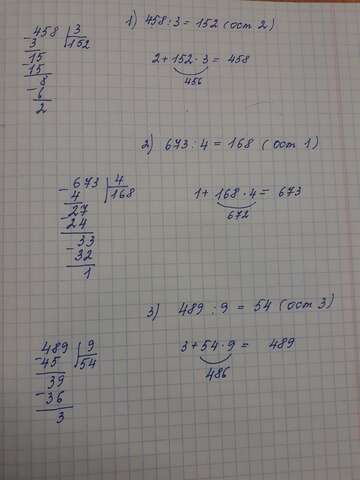 1) 458 : 3 = 152 (ост 2)
458 | 3
- 3 | 152
15
- 15
8
- 6
2
2 + 152 · 3 = 458
456
2) 673 : 4 = 168 (ост 1)
- 673 | 4
4 | 168
27
- 24
33
- 32
1
1 + 168 · 4 = 673
672
3) 489 : 9 = 54 (ост 3)
489 | 9
- 45 | 54
39
- 36
3
3 + 54 · 9 = 489
486